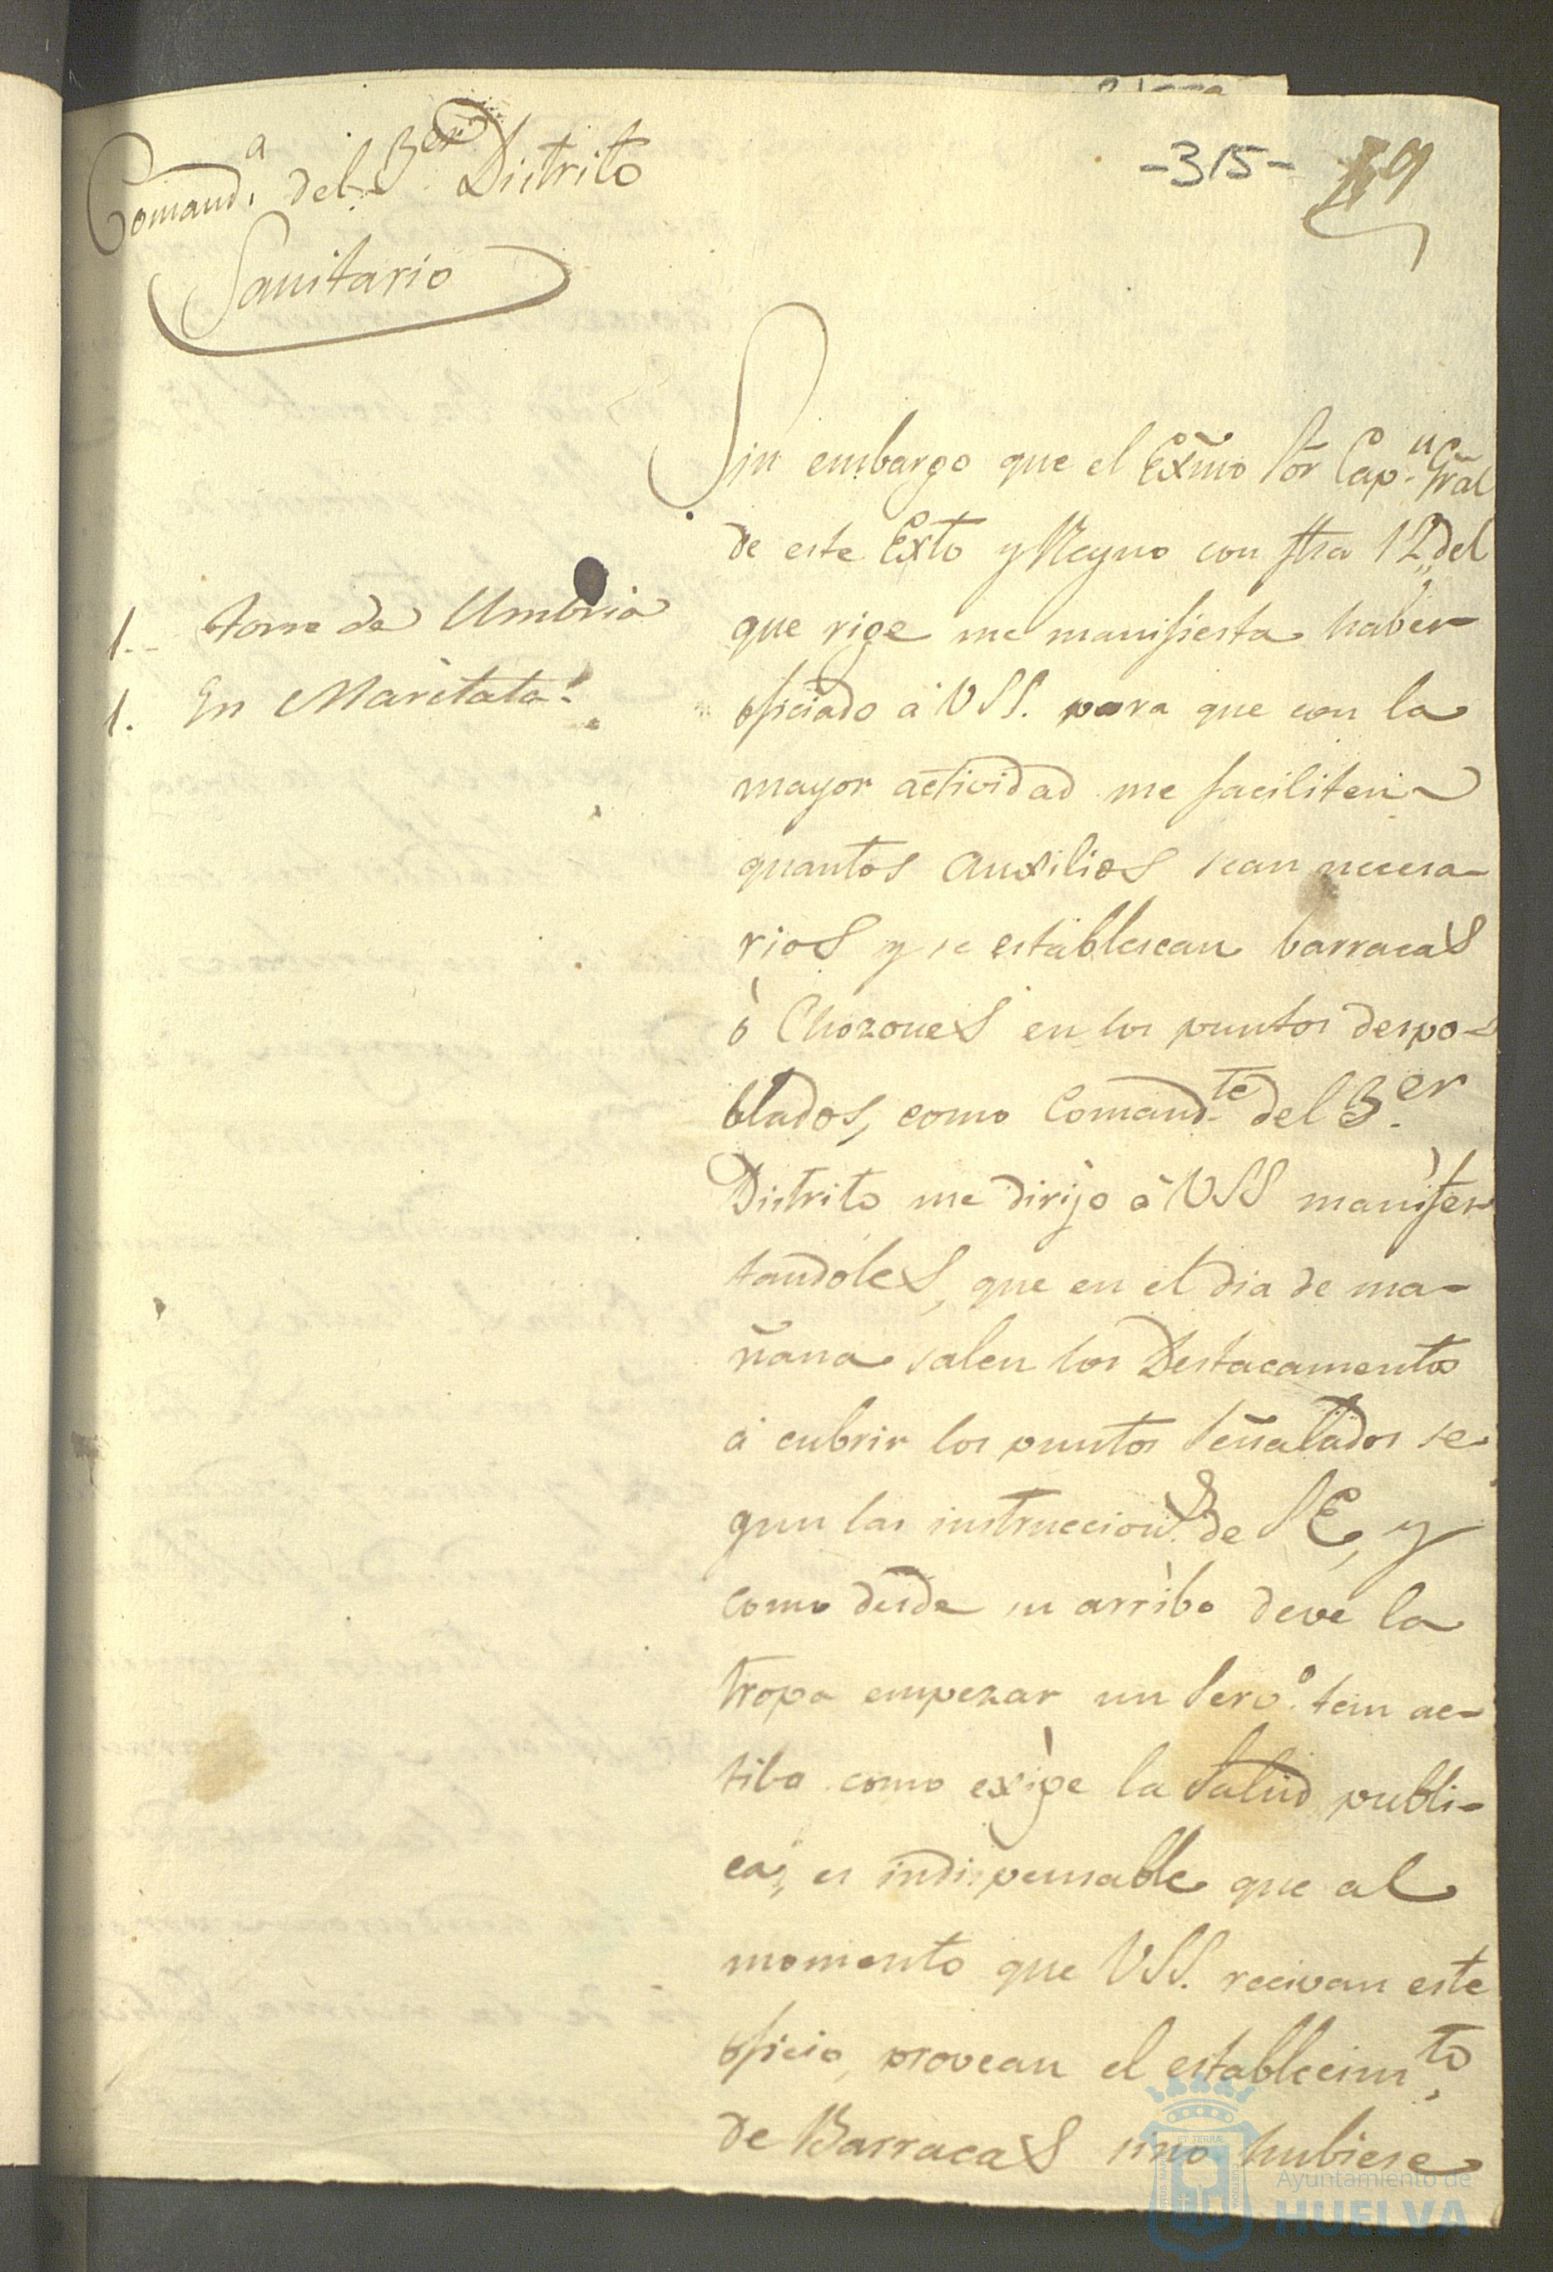 Comand.ª del 3.er Distrito
Sanitario
-315-
1.. torre de Umbria
1. En Maritata.
Sin embargo que el Exm̃o Sõr Cap.n Grãl
de este Exto y Reyno con fha 12,, del
que rige me manifiesta haber
oficiado á VSS. para que con la
mayor actividad me faciliten
quantos auxilios sean necesa-
rios y se establescan barracas
ò Chozones en los puntos despo-
blados, como Comand.te del 3.er
Distrito me dirijo á VSS manifes
tandoles, que en el dia de ma-
ñana salen los Destacamentos
á cubrir los puntos señalados se
gun las instruccion.s de SE, y
como desde su arribo deve la
tropa empezar un serv.º tan ac-
tibo como exige la salud publi-
ca, es indispensable que al
momento que VSS. recivan este
oficio, provean el establecim.to
de Barracas sino hubiese
Ayuntamiento de
HUELVA